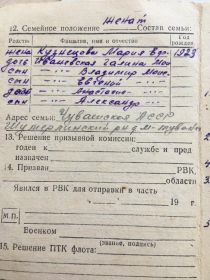 женат
12. Семейное положение Состав семьи:
Родство Фамилия, имя и отчество Год рожден.
жена Кузнецова Мария 1923
дочь Галина
сын — Владимир
сын — Евгений
дочь — Анастасия
сын — Александр
Адрес семьи: Чувашская АССР
Шумерлинский р-н д.
13. Решение призывной комиссии:
годен к службе и пред
назначен
14. Призван РВК,
области
Явился в РВК для отправки в часть
19 г.
М.П.
Военком
(звание, подпись)
15. Решение ПТК флота: